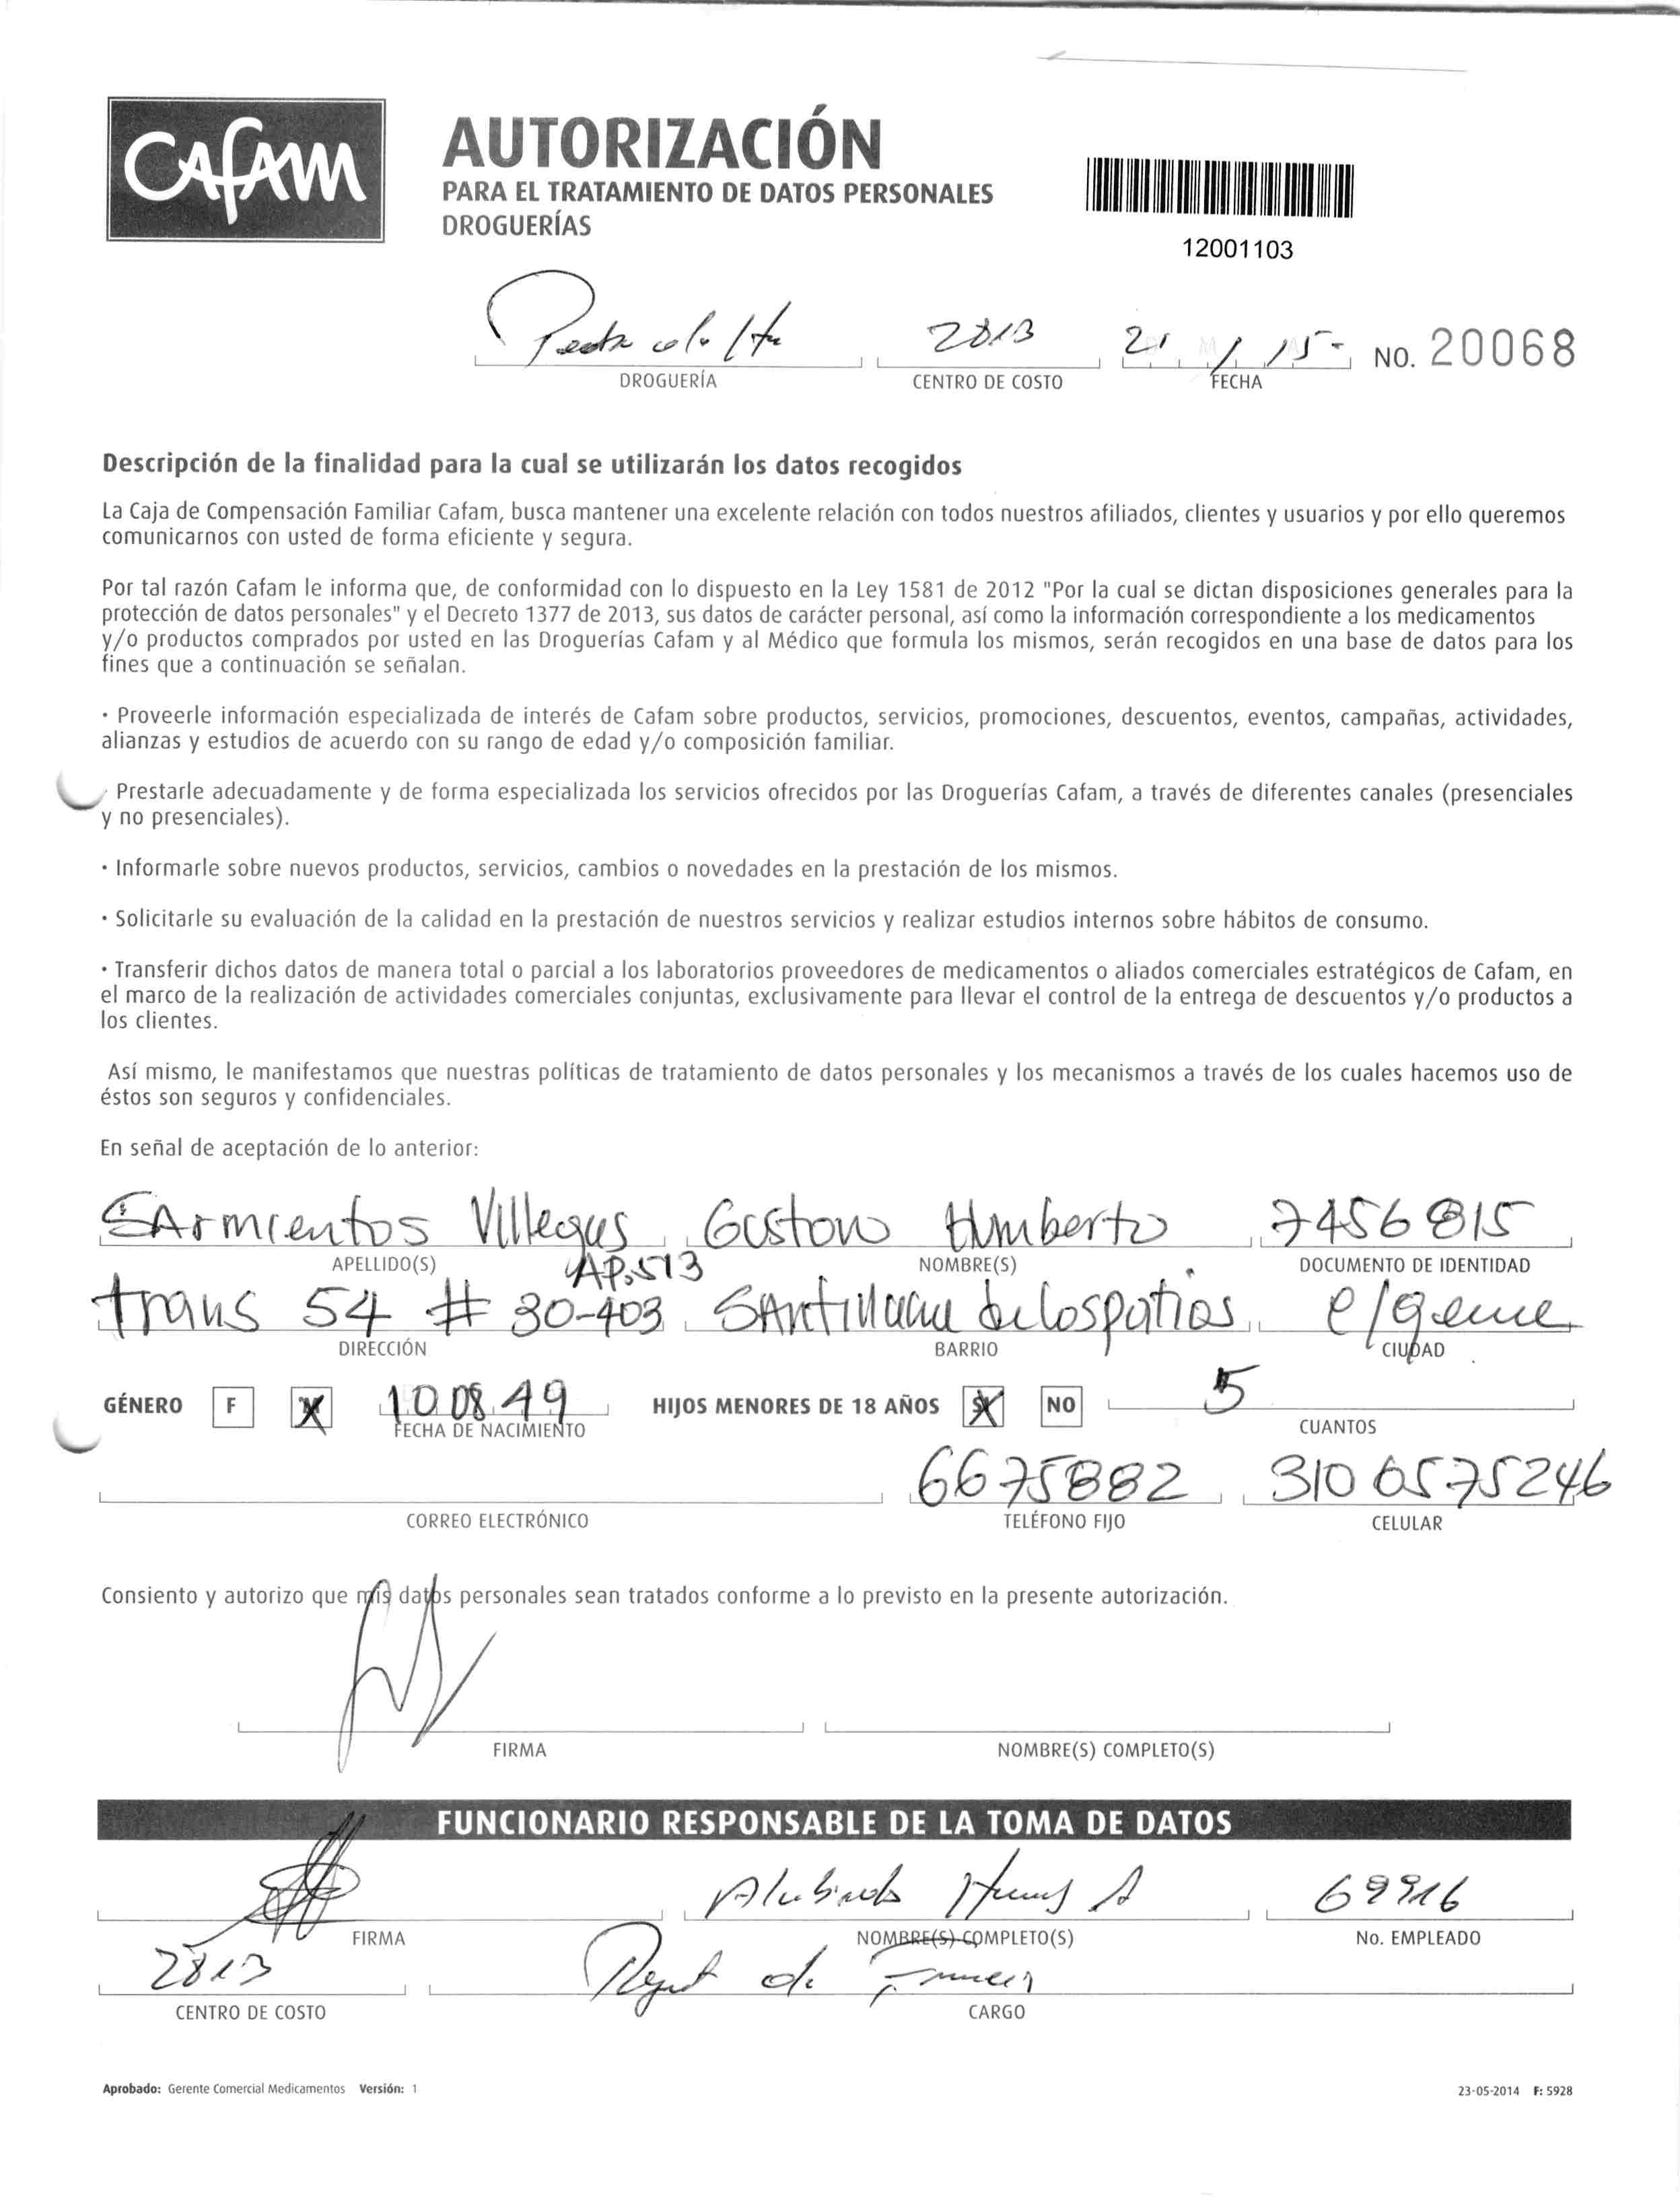 CAFAM
AUTORIZACIÓN
PARA EL TRATAMIENTO DE DATOS PERSONALES
DROGUERÍAS
12001103
2813 21 1 15- NO. 20068
DROGUERÍA CENTRO DE COSTO FECHA
Descripción de la finalidad para la cual se utilizarán los datos recogidos
La Caja de Compensación Familiar Cafam, busca mantener una excelente relación con todos nuestros afiliados, clientes y usuarios y por ello queremos
comunicarnos con usted de forma eficiente y segura.
Por tal razón Cafam le informa que, de conformidad con lo dispuesto en la Ley 1581 de 2012 "Por la cual se dictan disposiciones generales para la
protección de datos personales" y el Decreto 1377 de 2013, sus datos de carácter personal, así como la información correspondiente a los medicamentos
y/o productos comprados por usted en las Droguerías Cafam y al Médico que formula los mismos, serán recogidos en una base de datos para los
fines que a continuación se señalan.
• Proveerle información especializada de interés de Cafam sobre productos, servicios, promociones, descuentos, eventos, campañas, actividades,
alianzas y estudios de acuerdo con su rango de edad y/o composición familiar.
· Prestarle adecuadamente y de forma especializada los servicios ofrecidos por las Droguerías Cafam, a través de diferentes canales (presenciales
y no presenciales).
• Informarle sobre nuevos productos, servicios, cambios o novedades en la prestación de los mismos.
• Solicitarle su evaluación de la calidad en la prestación de nuestros servicios y realizar estudios internos sobre hábitos de consumo.
• Transferir dichos datos de manera total o parcial a los laboratorios proveedores de medicamentos o aliados comerciales estratégicos de Cafam, en
el marco de la realización de actividades comerciales conjuntas, exclusivamente para llevar el control de la entrega de descuentos y/o productos a
los clientes.
Así mismo, le manifestamos que nuestras políticas de tratamiento de datos personales y los mecanismos a través de los cuales hacemos uso de
éstos son seguros y confidenciales.
En señal de aceptación de lo anterior:
SArmientos Villegas Gustavo Humberto 7456815
APELLIDO(S) NOMBRE(S) DOCUMENTO DE IDENTIDAD
AP.513
trans 54 # 30-403 SAntillana de los patios c/gena
DIRECCIÓN BARRIO CIUDAD
GÉNERO F M 10 08 49 HIJOS MENORES DE 18 AÑOS SI NO 5
FECHA DE NACIMIENTO CUANTOS
6675882 310 6575246
CORREO ELECTRÓNICO TELÉFONO FIJO CELULAR
Consiento y autorizo que mis datos personales sean tratados conforme a lo previsto en la presente autorización.
FIRMA NOMBRE(S) COMPLETO(S)
FUNCIONARIO RESPONSABLE DE LA TOMA DE DATOS
69916
FIRMA NOMBRE(S) COMPLETO(S) No. EMPLEADO
2813 de
CENTRO DE COSTO CARGO
Aprobado: Gerente Comercial Medicamentos Versión: 1 23-05-2014 F: 5928